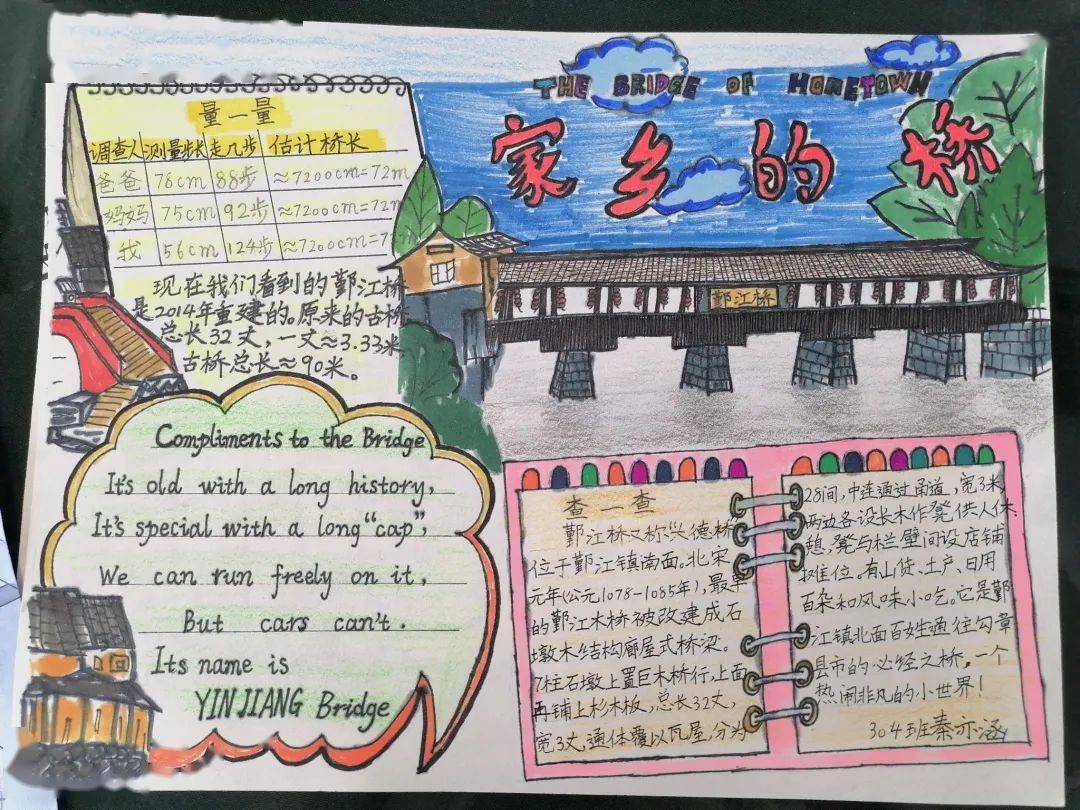 THE BRIDGE OF HOMETOWN
家乡的桥
量一量
调查人 测量步长 走几步 估计桥长
爸爸 78cm 88步 ≈7200cm=72m
妈妈 75cm 92步 ≈7200cm=72m
我 56cm 124步 ≈7200cm=7
现在我们看到的鄞江桥
是2014年重建的。原来的古桥
总长32丈，一丈≈3.33米
古桥总长≈90米。
鄞江桥
Compliments to the Bridge
It's old with a long history,
It's special with a long "cap",
We can run freely on it,
But cars can't.
Its name is
YINJIANG Bridge
查一查
鄞江桥又称"兴德桥
位于鄞江镇南面。北宋
元年(公元1078-1085年)，最早
的鄞江木桥被改建成石
墩木结构廊屋式桥梁。
7柱石墩上置巨木桥行，上面
再铺上杉木板，总长32丈，
宽3丈，通体覆以瓦屋，分为
28间，中连通过甬道，宽3米，
两边各设长木作凳供人休
憩，凳与栏壁间设店铺
摊位。有山货、土产、日用
百杂和风味小吃。它是鄞
江镇北面百姓通往勾章
县市的必经之桥，一个
热闹非凡的小世界！
304班秦亦涵